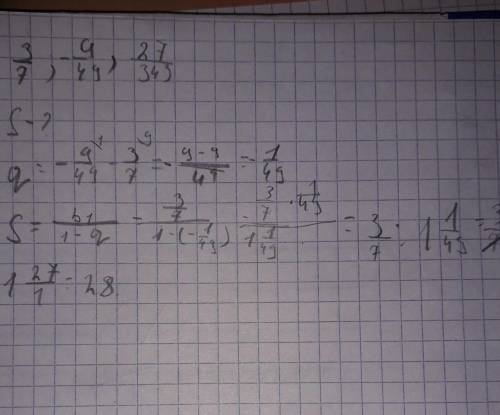 3/7, -9/49, 27/343
S - ?
q = -9/49 - 3/7 = -(9-9)/49 = -1/49
S = b1/(1-q) = (3/7)/(1-(-1/49)) = 3/7 : 1 1/49 =
1 27/1 = 28